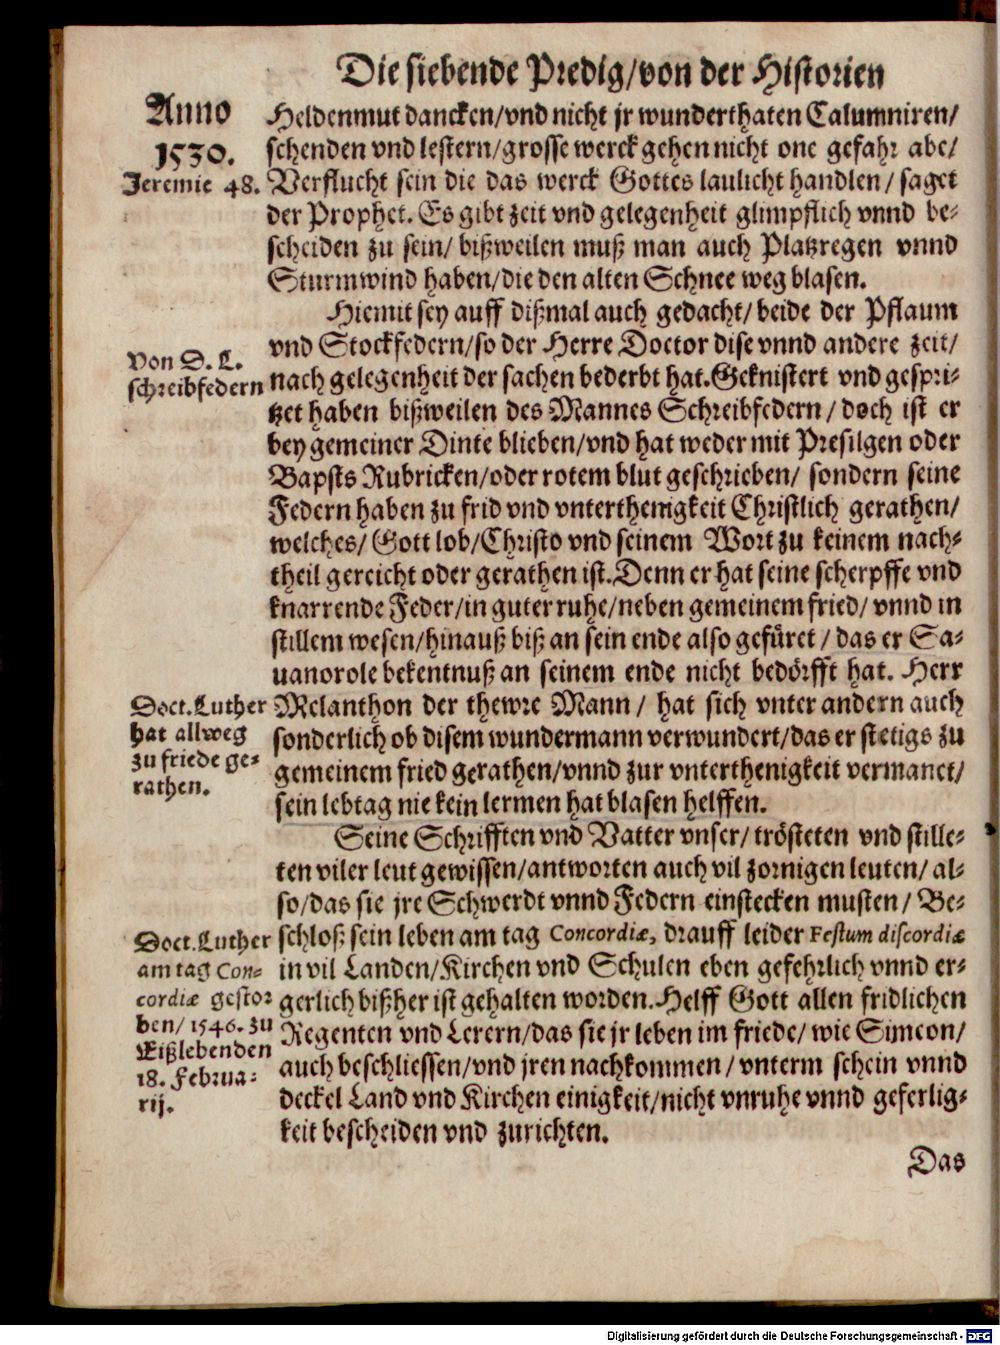 Die siebende Predig/von der Historien
Anno
1530.
Jeremie 48.
Heldenmut dancken/vnd nicht jr wunderthaten Calumniren/
schenden vnd lestern/grosse werck gehen nicht one gefahr abe/
Verflucht sein die das werck Gottes laulicht handlen/ saget
der Prophet. Es gibt zeit vnd gelegenheit glimpflich vnnd be-
scheiden zu sein/ bißweilen muß man auch Platzregen vnnd
Sturmwind haben/die den alten Schnee weg blasen.
Hiemit sey auff dißmal auch gedacht/ beide der Pflaum
vnd Stockfedern/so der Herre Doctor dise vnnd andere zeit/
Von D. L.
schreibfedern
nach gelegenheit der sachen bederbt hat. Geknistert vnd gespri-
tzet haben bißweilen des Mannes Schreibfedern/ doch ist er
bey gemeiner Dinte blieben/vnd hat weder mit Presilgen oder
Bapsts Rubricken/oder rotem blut geschrieben/ sondern seine
Federn haben zu frid vnd vnterthenigkeit Christlich gerathen/
welches/ Gott lob/Christo vnd seinem Wort zu keinem nach-
theil gereicht oder gerathen ist. Denn er hat seine scherpffe vnd
knarrende Feder/in guter ruhe/neben gemeinem fried/ vnnd in
stillem wesen/hinauß biß an sein ende also gefüret/ das er Sa-
uanorole bekentnuß an seinem ende nicht bedörfft hat. Herr
Doct. Luther
hat allweg
zu friede ge-
rathen.
Melanthon der thewre Mann/ hat sich vnter andern auch
sonderlich ob disem wundermann verwundert/das er stetigs zu
gemeinem fried gerathen/vnnd zur vnterthenigkeit vermanet/
sein lebtag nie kein lermen hat blasen helffen.
Seine Schrifften vnd Vatter vnser/ trösteten vnd stille-
ten viler leut gewissen/antworten auch vil zornigen leuten/ al-
so/das sie jre Schwerdt vnnd Federn einstecken musten/ Be-
Doct. Luther
am tag Con-
cordiæ gestor
ben/ 1546. zu
Eißleben den
18. Februa-
rij.
schloß sein leben am tag Concordiæ, drauff leider Festum discordiæ
in vil Landen/Kirchen vnd Schulen eben gefehrlich vnnd er-
gerlich bißher ist gehalten worden. Helff Gott allen fridlichen
Regenten vnd Lerern/das sie jr leben im friede/ wie Simeon/
auch beschliessen/vnd jren nachkommen/ vnterm schein vnnd
deckel Land vnd Kirchen einigkeit/nicht vnruhe vnnd geferlig-
keit bescheiden vnd zurichten.
Das
Digitalisierung gefördert durch die Deutsche Forschungsgemeinschaft - DFG